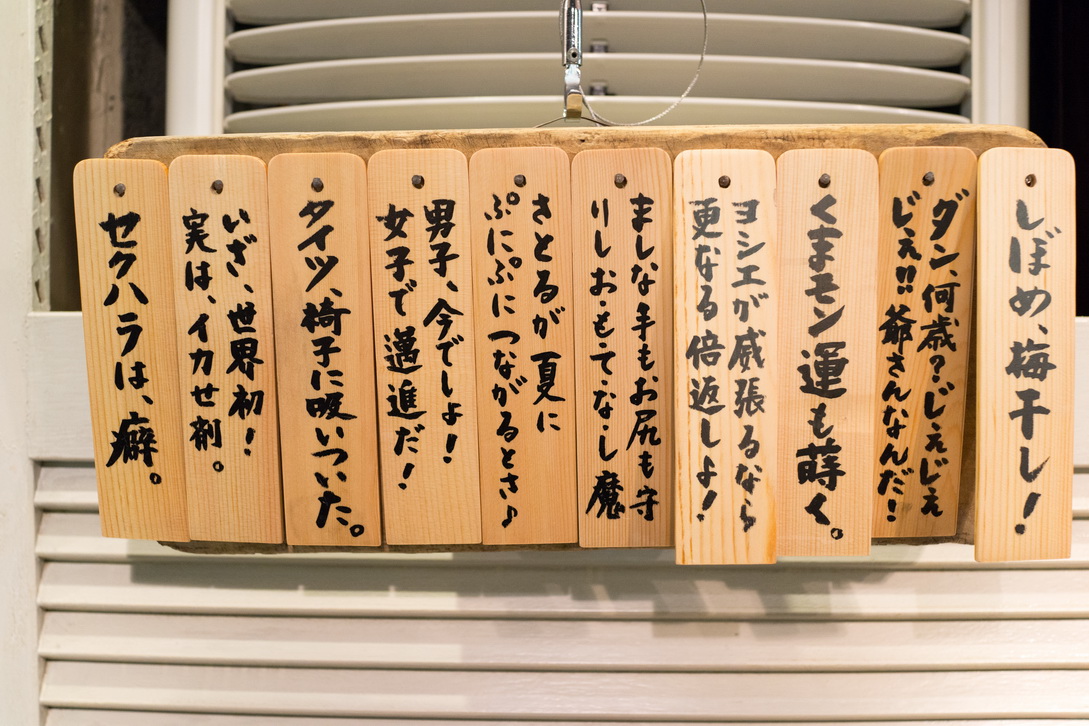 しぼめ、梅干し！
ダン、何歳？じぇじぇ
じぇ!!爺さんなんだ！
くまモン運も蒔く。
ヨシエが威張るなら
更なる倍返しよ！
ましな手もお尻も守
りしお・も・て・な・し魔
さとるが夏に
ぷにぷにつながるとさ♪
男子、今でしょ！
女子で邁進だ！
タイツ、椅子に吸いついた。
いざ、世界初！
実は、イカせ剤。
セクハラは、癖。